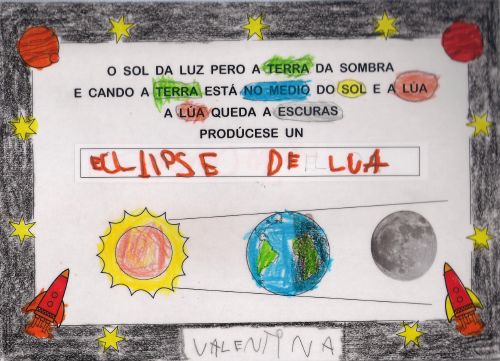 O SOL DA LUZ PERO A TERRA DA SOMBRA
E CANDO A TERRA ESTÁ NO MEDIO DO SOL E A LÚA
A LÚA QUEDA A ESCURAS
PRODÚCESE UN
ECLIPSE DE LUA
VALENTINA